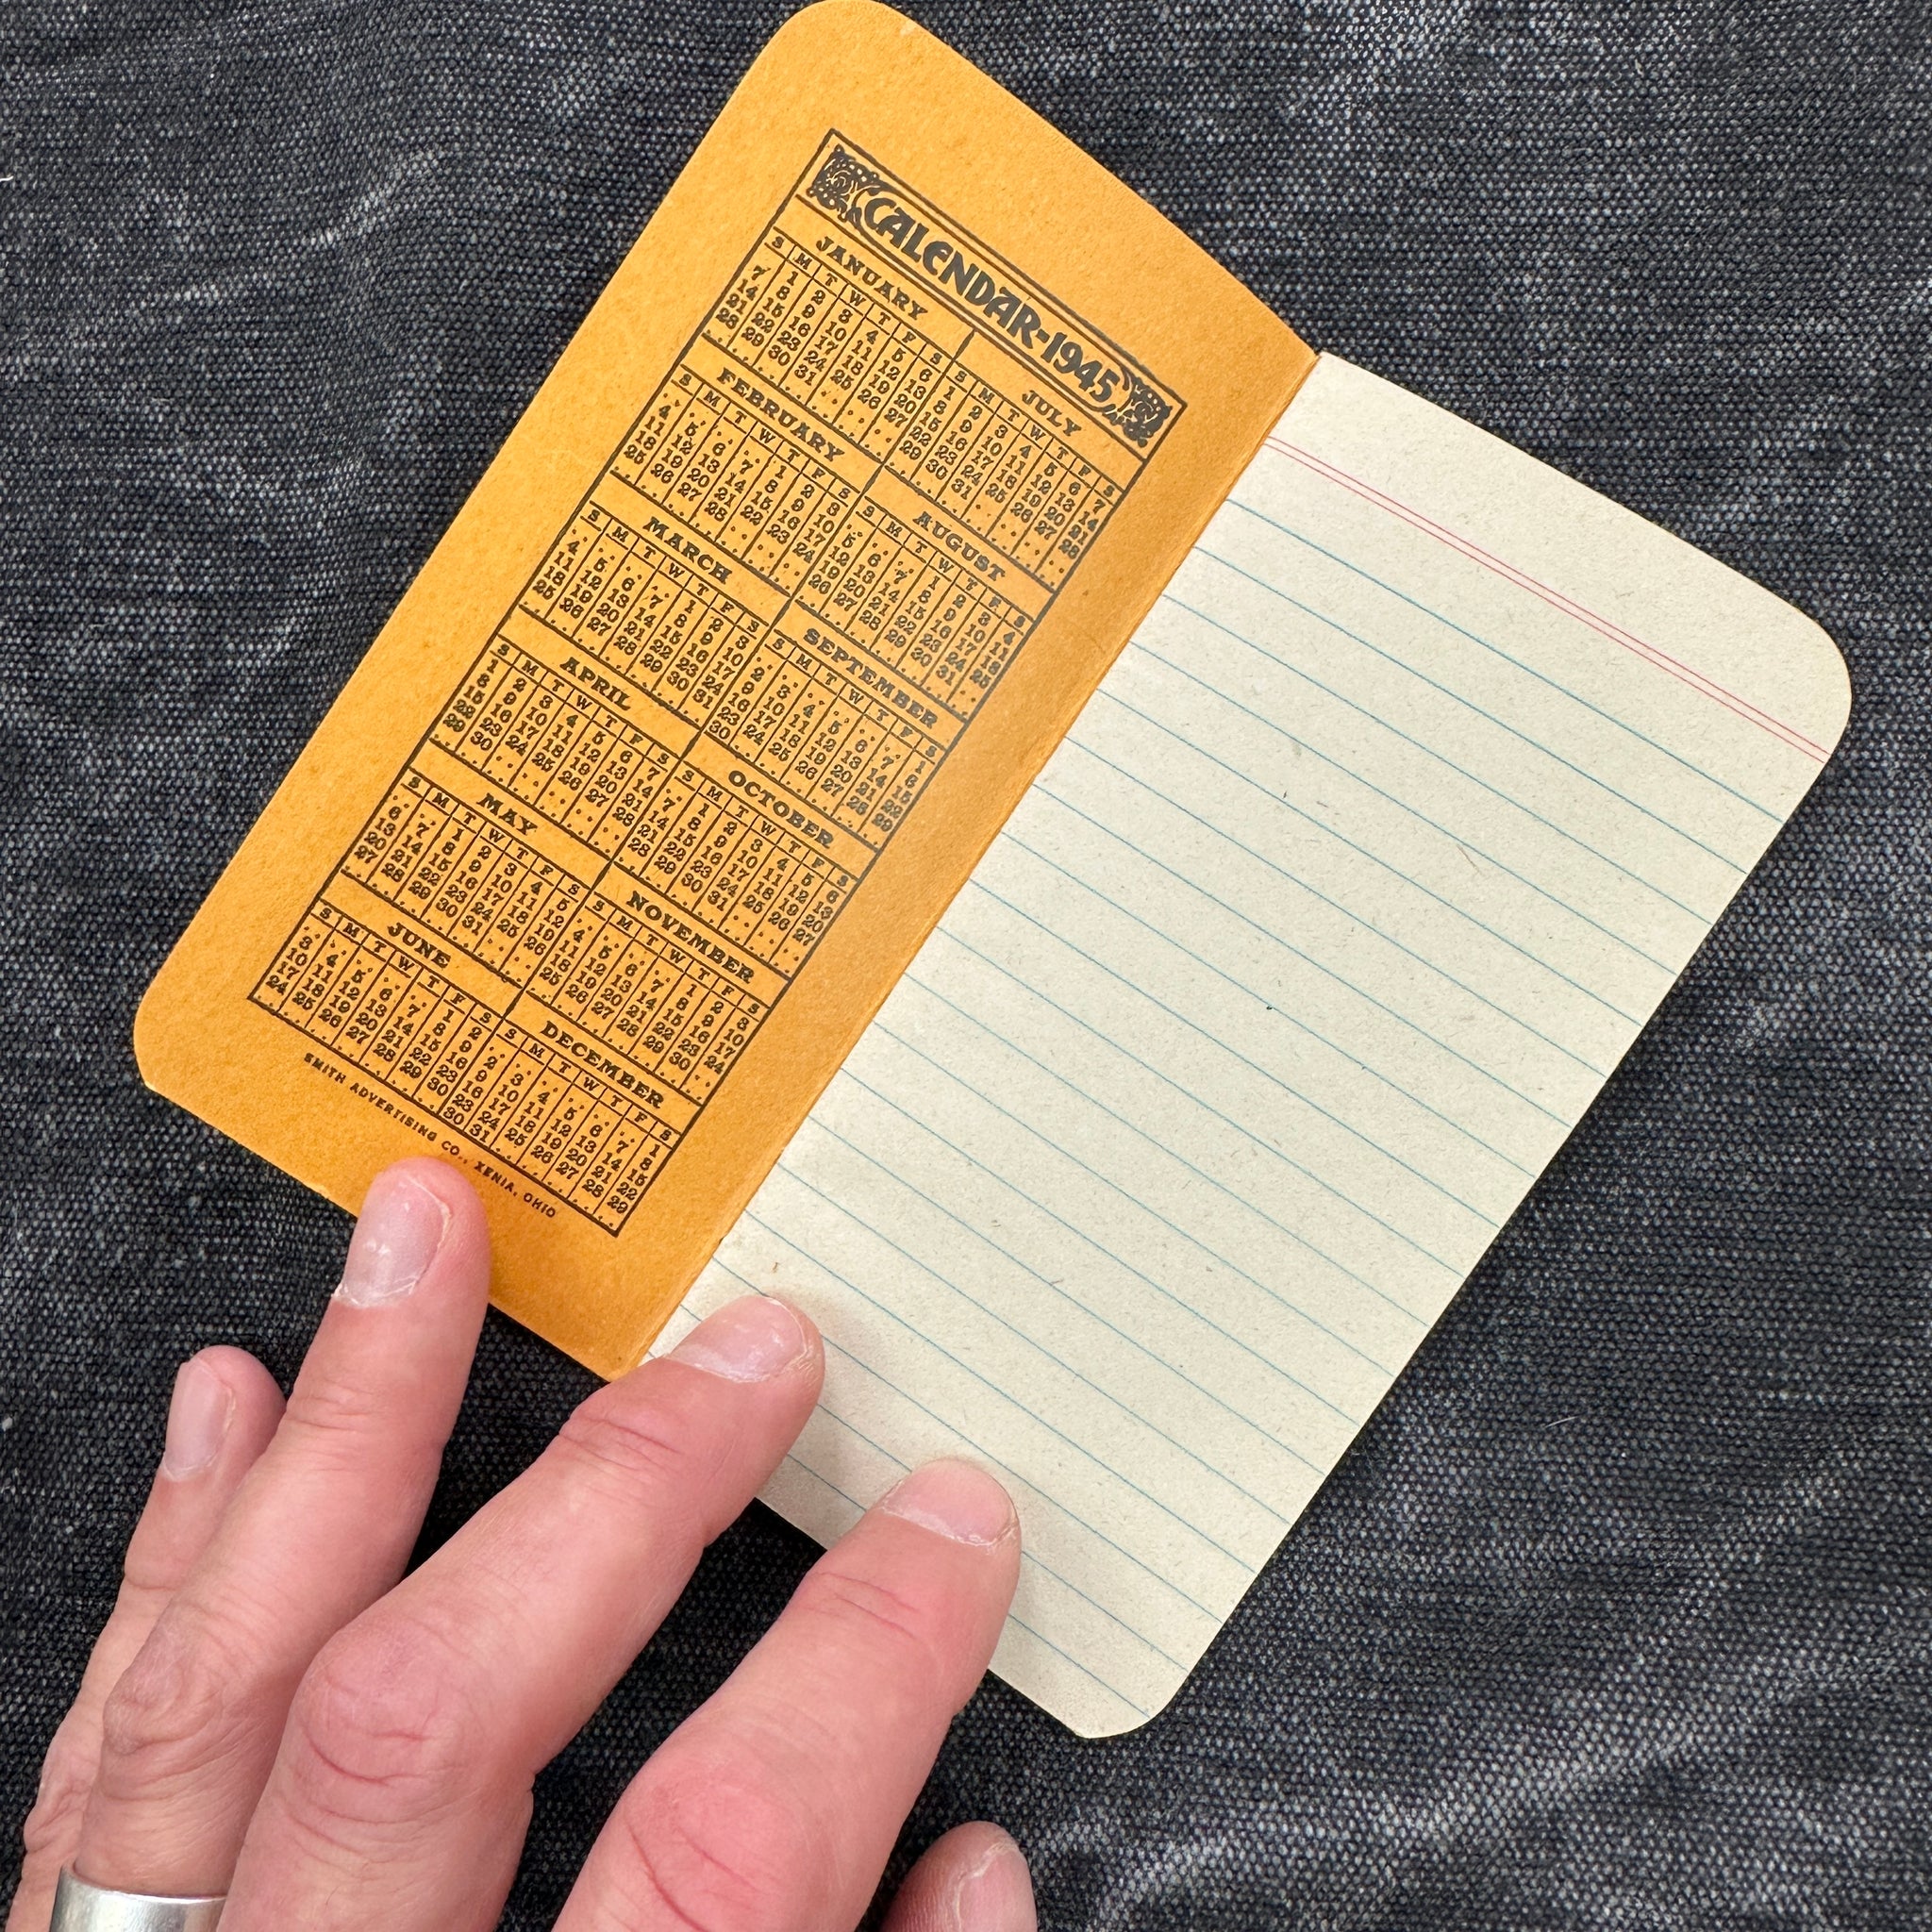 CALENDAR-1945
JANUARY
S M T W T F S
1 2 3 4 5 6
7 8 9 10 11 12 13
14 15 16 17 18 19 20
21 22 23 24 25 26 27
28 29 30 31
FEBRUARY
S M T W T F S
1 2 3
4 5 6 7 8 9 10
11 12 13 14 15 16 17
18 19 20 21 22 23 24
25 26 27 28
MARCH
S M T W T F S
1 2 3
4 5 6 7 8 9 10
11 12 13 14 15 16 17
18 19 20 21 22 23 24
25 26 27 28 29 30 31
APRIL
S M T W T F S
1 2 3 4 5 6 7
8 9 10 11 12 13 14
15 16 17 18 19 20 21
22 23 24 25 26 27 28
29 30
MAY
S M T W T F S
1 2 3 4 5
6 7 8 9 10 11 12
13 14 15 16 17 18 19
20 21 22 23 24 25 26
27 28 29 30 31
JUNE
S M T W T F S
1 2
3 4 5 6 7 8 9
10 11 12 13 14 15 16
17 18 19 20 21 22 23
24 25 26 27 28 29 30
JULY
S M T W T F S
1 2 3 4 5 6 7
8 9 10 11 12 13 14
15 16 17 18 19 20 21
22 23 24 25 26 27 28
29 30 31
AUGUST
S M T W T F S
1 2 3 4
5 6 7 8 9 10 11
12 13 14 15 16 17 18
19 20 21 22 23 24 25
26 27 28 29 30 31
SEPTEMBER
S M T W T F S
1
2 3 4 5 6 7 8
9 10 11 12 13 14 15
16 17 18 19 20 21 22
23 24 25 26 27 28 29
30
OCTOBER
S M T W T F S
1 2 3 4 5 6
7 8 9 10 11 12 13
14 15 16 17 18 19 20
21 22 23 24 25 26 27
28 29 30 31
NOVEMBER
S M T W T F S
1 2 3
4 5 6 7 8 9 10
11 12 13 14 15 16 17
18 19 20 21 22 23 24
25 26 27 28 29 30
DECEMBER
S M T W T F S
1
2 3 4 5 6 7 8
9 10 11 12 13 14 15
16 17 18 19 20 21 22
23 24 25 26 27 28 29
30 31
SMITH ADVERTISING CO., XENIA, OHIO